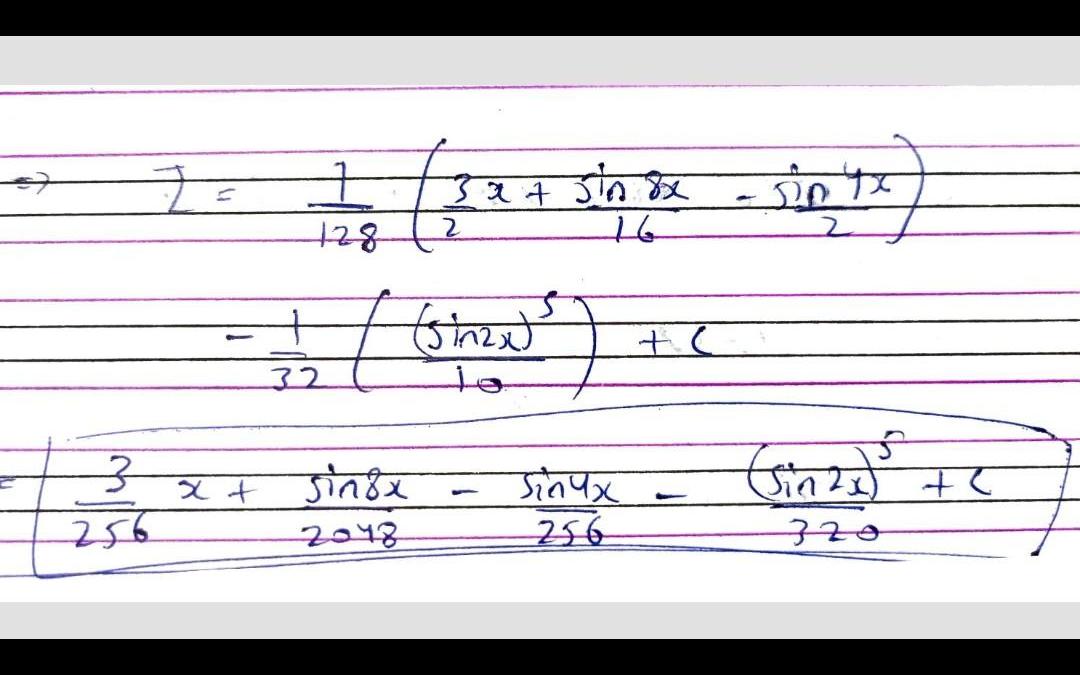 => I = 1/128 ( 3/2 x + sin8x/16 - sin4x/2 )
- 1/32 ( (sin2x)^5/10 ) + c
= 3/256 x + sin8x/2048 - sin4x/256 - (sin2x)^5/320 + c